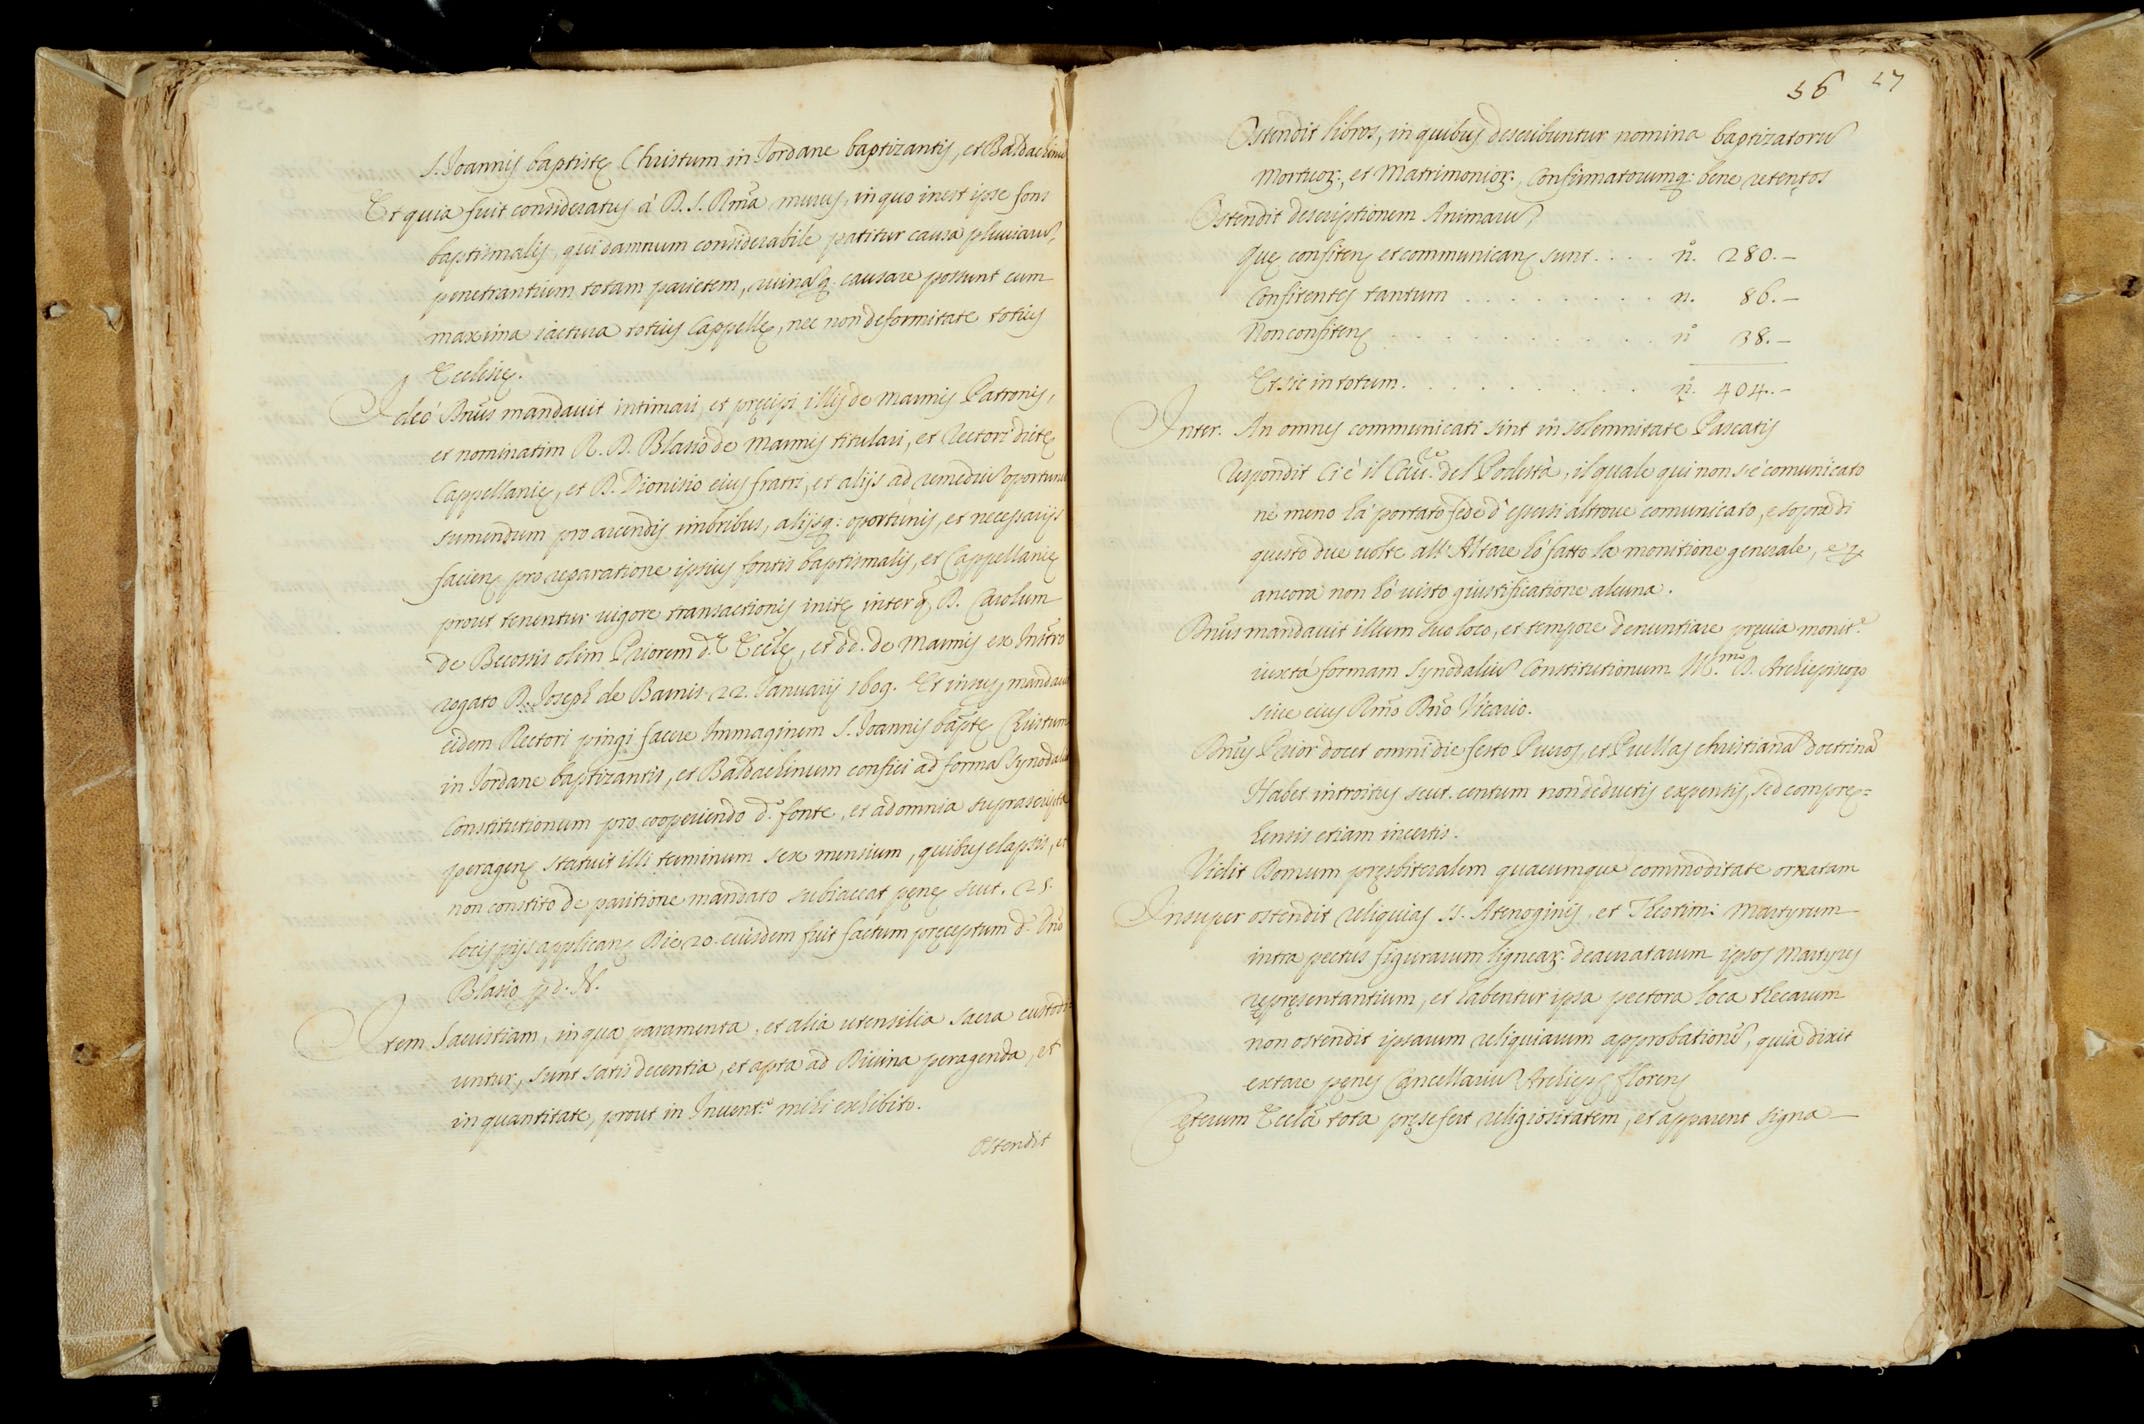 S. Joannis baptistę Christum in Jordane baptizantis, et Baldachinũ
Et quia fuit consideratus à D. S. Rm̃a murus, in quo inest ipse fons
baptismalis, qui damnum considerabile patitur causa pluuiarũ,
penetrantium totam parietem, ruinasq: causare possunt cum
maxima iactura totius Cappellę, nec non deformitate totius
Ecclesię.
Ideò Dñus mandauit intimari, et pręcipi illis de Marinis Patronis,
et nominatim R. D. Blasio de Marinis titulari, et Rectori dictę
Cappellanię, et D. Dionisio eius fratri, et alijs ad remediũ oportunũ
sumendum pro arcendis imbribus, alijsq: oportunis, et necessarijs
facien; pro reparatione ipsius fontis baptismalis, et Cappellanię
prout tenentur uigore transactionis initę inter q; D. Carolum
de Becossis olim Priorem d.ę Ecclę, et dd. de Marinis ex Instro
rogato D. Joseph de Barnis 22. Januarij 1609. Et insup; mandauit
eidem Rectori pingi facere Immaginem S. Joannis baptę Christum
in Jordane baptizantis, et Baldachinum confici ad formã Synodaliũ
Constitutionum pro cooperiendo d.º fonte, et ad omnia suprascripta
peragen; statuit illi terminum sex mensium, quibus elapsis, et
non constito de paritione mandato subiaceat pęnę scut. 25.
locis pijs applican; Die 20. eiusdem fuit factum pręceptum d.º Dño
Blasio p d. N.
Item Sacristiam, in qua paramenta, et alia utensilia sacra custodi=
untur, sunt satis decentia, et apta ad Diuina peragenda, et
in quantitate, prout in Inuent.º mihi exhibito.
Ostendit
56 57
Ostendit libros, in quibus describuntur nomina baptizatorũ
Mortuoꝝ, et Matrimonioꝝ, Confirmatorumq: bene retentos
Ostendit descriptionem Animarũ,
Quę confiten; et communican; sunt . . . . n.º 280.–
Confitentes tantum . . . . . . . . . n. 86.–
Non confiten; . . . . . . . . . . . n.º 38.–
Et sic in totum . . . . . . . . . . n.º 404.–
Inter. An omnes communicati sint in solemnitate Pascatis
Respondit Ci è il Cau.re del Podestà, il quale qui non s'è comunicato
nè meno hà portato fede d'essersi altroue comunicato, e sopra di
questo due uolte all'Altare hò fatto la monitione generale, e p
ancora non hò uisto giustificatione alcuna.
Dñus mandauit illum suo loco, et tempore denuntiare pręuia monit.e
iuxtà formam Synodaliũ Constitutionum Ill.mo D. Archiepiscopo
siue eius Rm̃o Dño Vicario.
Dñus Prior docet omni die festo Pueros, et Puellas christianã doctrinã
Habet introitus scut. centum non deductis expensis, sed compre=
hensis etiam incertis.
Vidit Domum pręsbiteralem quacumque commoditate ornatam
Insuper ostendit reliquias SS. Atenoginis, et Theotimi Martyrum
intra pectus figurarum ligneaꝝ deauratarum ipsos Martyres
repręsentantium, et habentur ipsa pectora loca thecarum
non ostendit ipsarum reliquiarum approbationẽ, quia dixit
extare pęnes Cancellariũ Archiep; floren;
Cęterum Eccla tota pręsefert religiositatem, et apparent signa